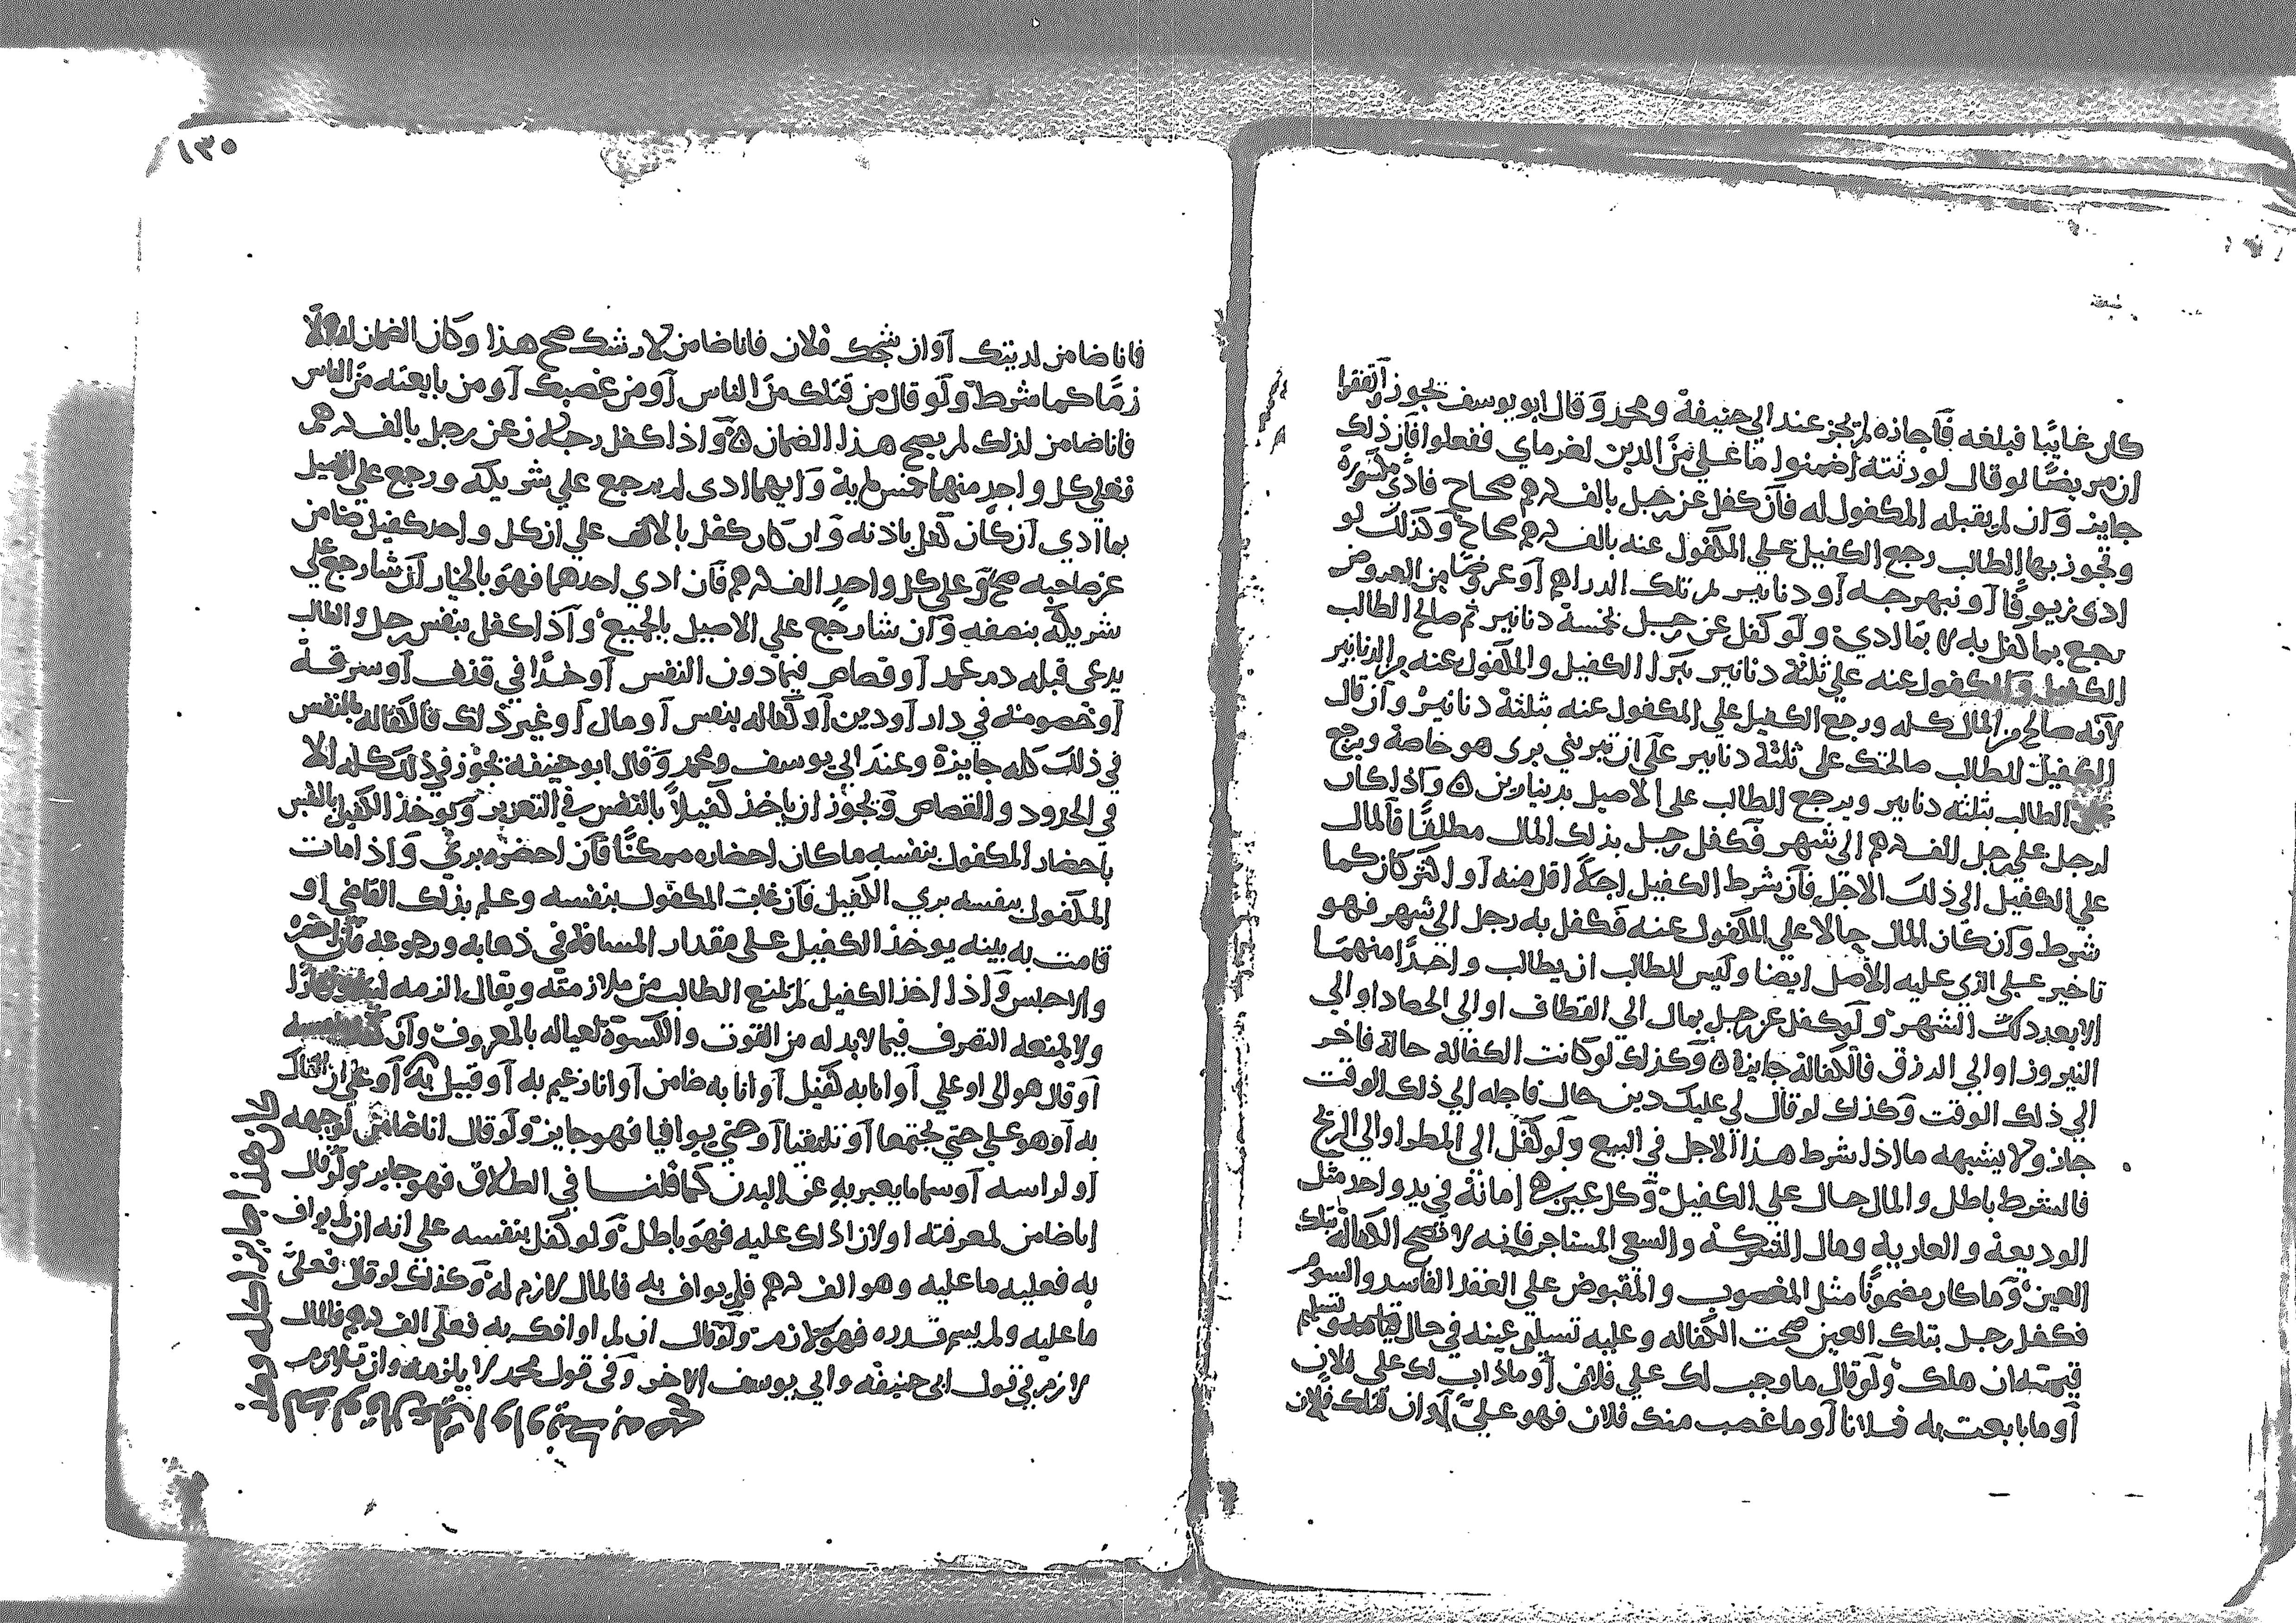 كان غائبا فبلغه فأجازه لم يجز عند ابي حنيفة ومحمد وقال ابو يوسف يجوز واتفقوا
ان مريضا لو قال لورثته اضمنوا ما علي من الدين لغرماي ففعلوا فان ذلك
جايز وان لم يقبله المكفول له فان كفل عن رجل بالف درهم صحاح فادى مكسورة
وتجوز بها الطالب رجع الكفيل على المكفول عنه بالف درهم صحاح وكذلك لو
ادى زيوفا او نبهرجه او دنانير تلك الدراهم او عرضا من العروض
رجع بما كفل به لا بما ادي ولو كفل عن رجل بخمسة دنانير ثم صالح الطالب
الكفيل والمكفول عنه على ثلثة دنانير برا الكفيل والمكفول عنه من الدنانير
لانه صالح من المال كله ورجع الكفيل علي المكفول عنه بثلثة دنانير وان قال
الكفيل للطالب صالحتك على ثلثة دنانير على ان تبريني برى هو خاصة ويرجع
الطالب بثلثه دنانير ويرجع الطالب على الاصيل بدينارين ٥ واذا كان
لرجل على رجل الف درهم الى شهر فكفل رجل بذلك المال مطلقا فالمال
علي الكفيل الى ذلك الاجل فان شرط الكفيل اجلا اقل منه او اكثر كان كما
شرط وان كان المال حالا علي المكفول عنه فكفل به رجل الى شهر فهو
تاخير علي الذي عليه الاصل ايضا وليس للطالب ان يطالب واحدا منهما
الا بعد ذلك الشهر ولو كفل عن رجل بمال الي القطاف او الى الحصاد او الي
النيروز او الي الدرق فالكفالة جايزة ٥ وكذلك لو كانت الكفالة حالة فاخر
الي ذلك الوقت وكذلك لو قال لي عليك دين حال فاجله الي ذلك الوقت
جاز ولا يشبهه ما اذا شرط هذا الاجل في البيع ولو كفل الى المطر او الى الريح
فالشرط باطل والمال حال علي الكفيل وكل عين هي امانة في يد واحد مثل
الوديعة والعارية ومال الشركة والشي المستاجر فانه لا تصح الكفالة بتلك
العين وما كان مضمونا مثل المغصوب والمقبوض علي العقد الفاسد والسوم
فكفل رجل بتلك العين صحت الكفاله وعليه تسليم عينه في حال قيامه وتسليم
قيمته ان هلك ولو قال ما وجب لك علي فلان او ما ذاب لك على فلان
او ما بايعت به فلانا او ما غصب منك فلان فهو علي او ان قتلك فلان
١٣٥
فانا ضامن لديتك او ان شجك فلان فانا ضامن لارشك صح هذا وكان الضمان
زما كما شرط ولو قال من قتلك من الناس او من غصبك او من بايعته من الناس
فانا ضامن لذلك لم يصح هذا الضمان ٥ واذا كفل رجلان عن رجل بالف درهم
فعلى كل واحد منهما خمس ماية وايهما ادى لم يرجع علي شريكه ورجع علي الاصيل
بما ادي ان كان كفل باذنه وان كان كفل بالالف علي ان كل واحد كفيل ضامن
عن صاحبه صح وعلي كل واحد الف درهم فان ادي احدهما فهو بالخيار ان شا رجع علي
شريكه بنصفه وان شا رجع علي الاصيل بالجميع واذا كفل بنفس رجل والطالب
يدعى قبله دم عمد او قصاص فيما دون النفس او حدا في قذف او سرقة
او خصومته في دار او دين او كفاله بنفس او مال او غير ذلك فالكفاله بالنفس
في ذلك كله جايزة وعند ابي يوسف ومحمد وقال ابو حنيفة يجوز في ذلك كله الا
في الحدود والقصاص ويجوز ان ياخذ كفيلا بالنفس في التعزير ويوخذ الكفيل بالنفس
باحضار المكفول بنفسه ما كان احضاره ممكنا فان احضره بري واذا مات
المكفول بنفسه بري الكفيل فان غاب المكفول بنفسه وعلم بذلك القاضي او
قامت به بينه يوخذ الكفيل على مقدار المسافة في ذهابه ورجوعه فان احضره
والا حبس واذا اخذ الكفيل لم يمنع الطالب من ملازمته ويقال الزمه
ولا يمنعه التصرف فيما لابد له من القوت والكسوة لعياله بالمعروف وان
او قال هو الى او علي او انا به كفيل او انا به ضامن او انا زعيم به او قبيل به او علي ان
به او هو علي حتي يجتمعا او تلتقيا او حتي يوافيا فهو جايز ولو قال انا ضامن لوجهه
او لراسه او سما ما يعبر به عن البدن كما قلنا في الطلاق فهو جايز ولو قال
انا ضامن لمعرفته او لان اذلك عليه فهو باطل ولو كفل بنفسه على انه ان لم يواف
به فعليه ما عليه وهو الف درهم فلم يواف به فالمال لازم له وكذلك لو قال فعلي
ما عليه ولم يسم قدره فهو لازم ولو قال ان لم اوافك به فعلي الف درهم فالمال
لازم في قول ابي حنيفه وابي يوسف الاخر وفي قول محمد لا يلزمه وان
كان هذا جايزا كله